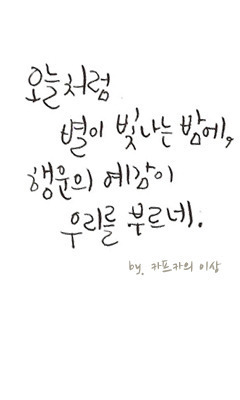 오늘처럼
별이 빛나는 밤에,
행운의 예감이
우리를 부르네.
by. 카프카의 이상